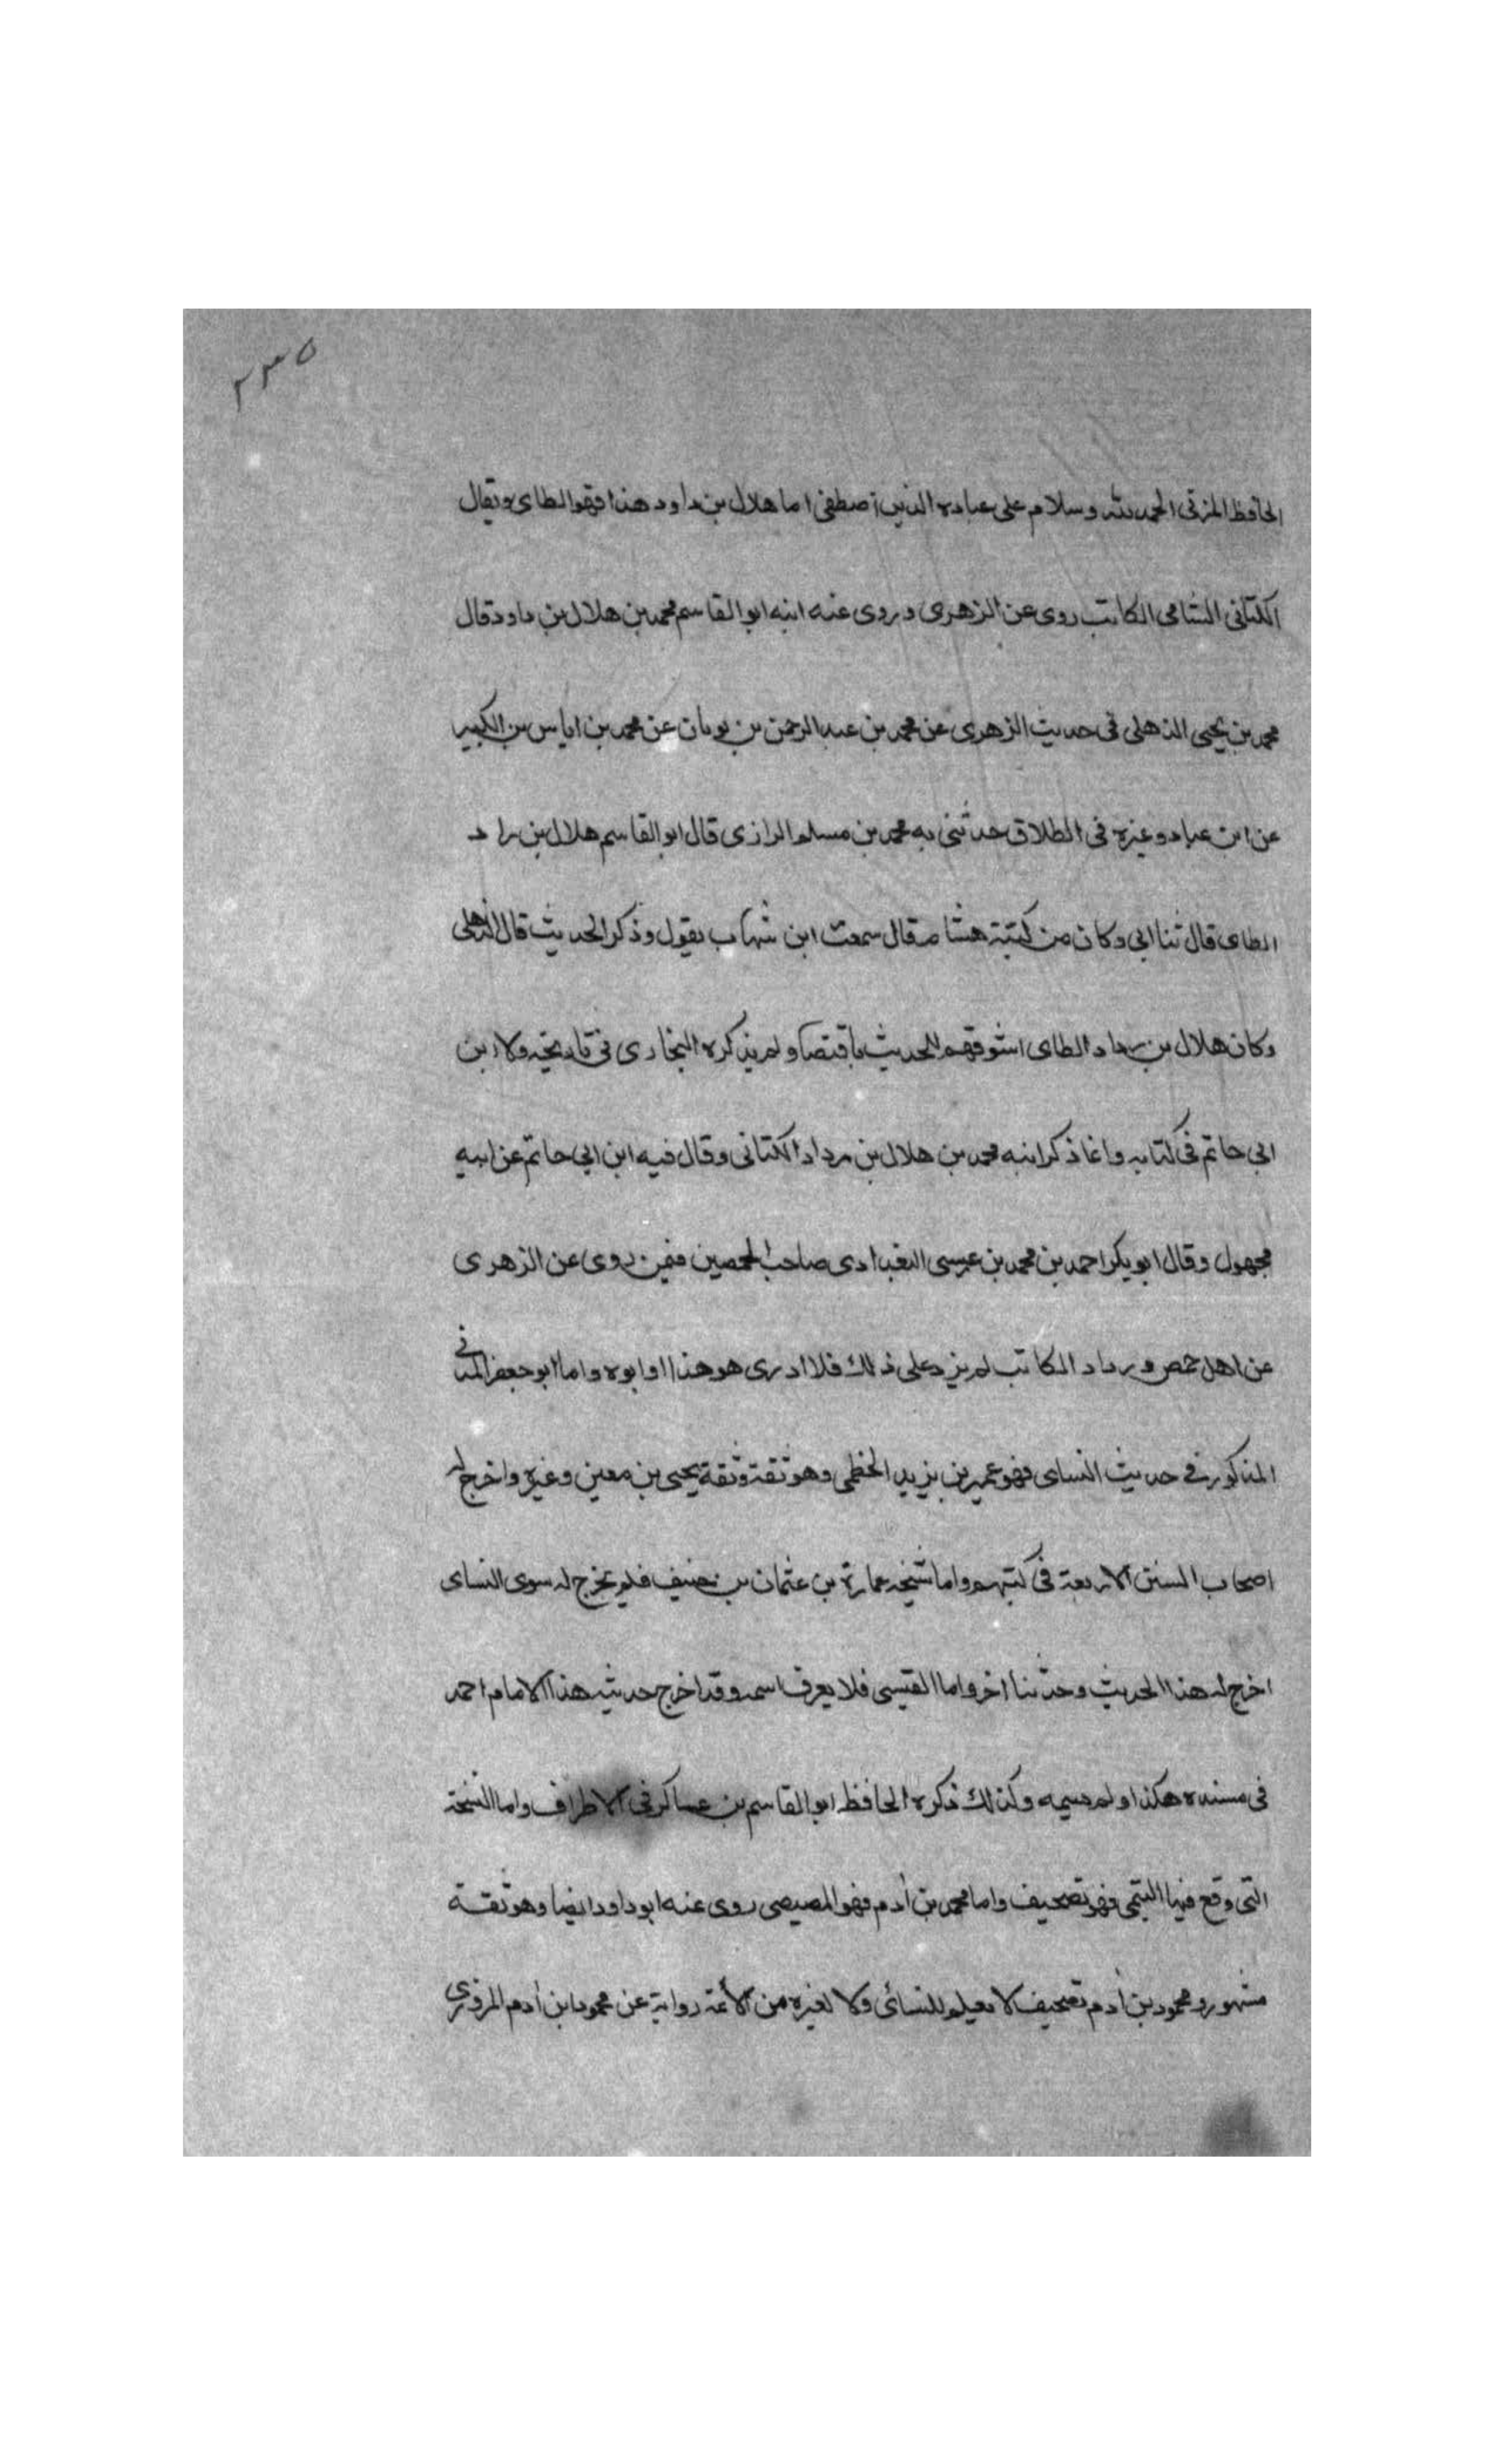 ٣٣٥
الحافظ المزني الحمد لله وسلام على عباده الذين اصطفى اما هلال بن داود هذا فهو الطاى ويقال
الكتانى الشامى الكاتب روى عن الزهرى وروى عنه ابنه ابو القاسم محمد بن هلال بن داود قال
محمد بن يحيى الذهلى فى حديث الزهرى عن محمد بن عبد الرحمن بن ثوبان عن محمد بن اياس بن الكبير
عن ابن عباد وغيره فى الطلاق حدثنى به محمد بن مسلم الرازى قال ابو القاسم هلال بن راد
الطاى قال ثنا ابى وكان من كتبة هشام قال سمعت ابن شهاب يقول وذكر الحديث قال الذهلى
وكان هلال بن رداد الطاى اسوقهم للحديث باقتصا ولم يذكره البخارى فى تاريخه ولا ابن
ابى حاتم فى كتابه وانما ذكر ابنه محمد بن هلال بن رداد الكتانى وقال فيه ابن ابى حاتم عن ابيه
مجهول وقال ابو بكر احمد بن محمد بن عيسى البغدادى صاحب الحمصين فيمن روى عن الزهرى
عن اهل حمص ورداد الكاتب لم يزد على ذلك فلا ادرى هو هذا او ابوه واما ابو جعفر المدنى
المذكور فى حديث النساى فهو عمير بن يزيد الخطمى وهو ثقة وثقه يحيى بن معين وغيره واخرج له
اصحاب السنن الاربعة فى كتبهم واما شيخه عمارة بن عثمان بن حنيف فلم يخرج له سوى النساى
اخرج له هذا الحديث وحدثنا اخر واما القيسى فلا يعرف اسمه وقد اخرج حديثه هذا الامام احمد
فى مسنده هكذا ولم يسمه وكذلك ذكره الحافظ ابو القاسم بن عساكر فى الاطراف واما النسخة
التى وقع فيها التيمى فهو تصحيف واما محمد بن أدم فهو المصيصى روى عنه ابو داود ايضا وهو ثقة
مشهور ومحمود بن أدم تصحيف لا يعلم للنسائى ولا لغيره من الأئمة رواية عن محمود ابن أدم المروزى